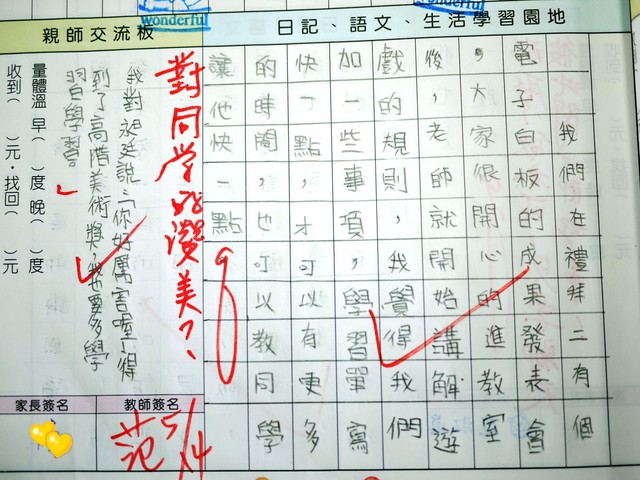 wonderful
日記、語文、生活學習園地
我們在禮拜二有個
電子白板的成果發表會
，大家很開心的進教室
後，老師就開始講解遊
戲的規則，我覺得我們
加一些事項，學習單寫
快一點，才可以有更多
的時間，也可以教同學
讓他快一點。
親師交流板
對同學的讚美？
我對昶廷說：「你好厲害喔，得
到了高階美術獎，我也要多學
習學習。
量體溫 早( )度 晚( )度
收到( )元，找回( )元
教師簽名
范 5/14
家長簽名